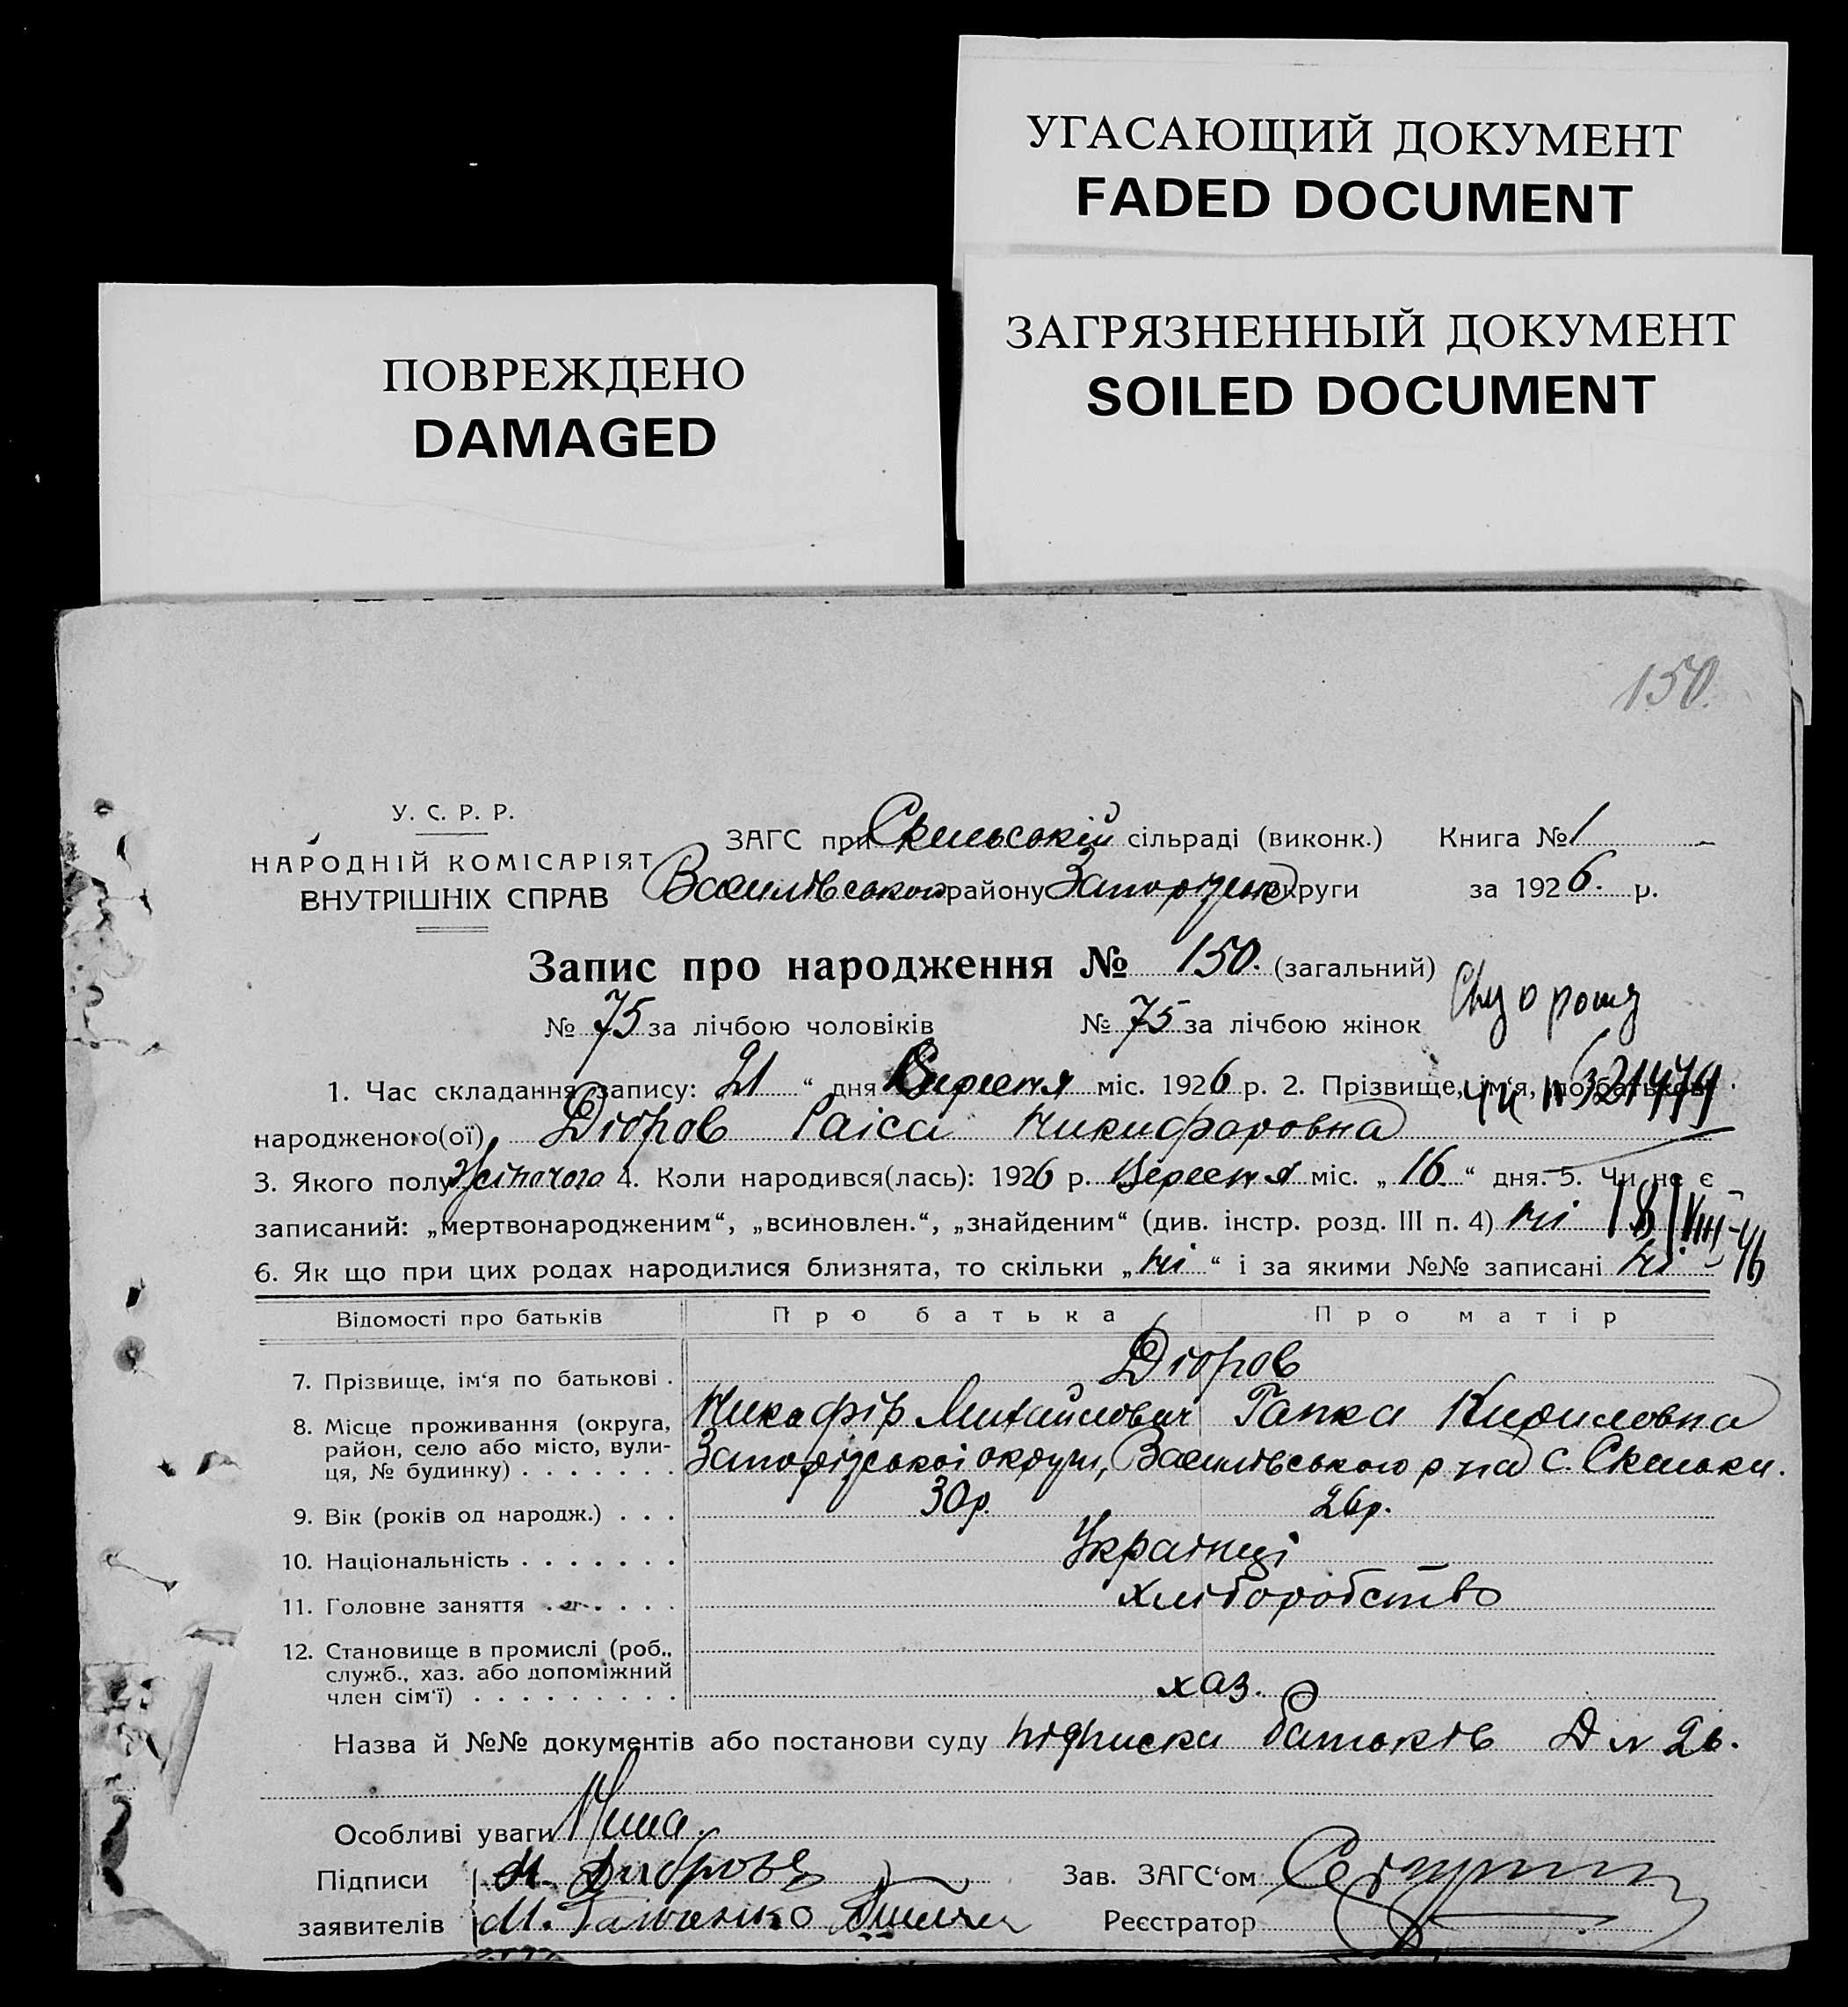 УГАСАЮЩИЙ ДОКУМЕНТ
FADED DOCUMENT
ЗАГРЯЗНЕННЫЙ ДОКУМЕНТ
SOILED DOCUMENT
ПОВРЕЖДЕНО
DAMAGED
150.
У. С. Р. Р.
НАРОДНІЙ КОМІСАРІЯТ
ВНУТРІШНІХ СПРАВ
ЗАГС при Скельській сільраді (виконк.) Книга № 1
Василівського району Запорізьк округи за 1926. р.
Запис про народження № 150. (загальний)
№ 75 за лічбою чоловіків № 75 за лічбою жінок
1. Час складання запису: 21 “ дня Вересня міс. 1926 р. 2. Прізвище, ім‘я, по батькові
народженого(ої) Дібров Раіса Никифоровна
3. Якого полу Жіночого 4. Коли народився(лась): 1926 р. Вересня міс. „ 16 “ дня. 5. Чи не є
записаний: „мертвонародженим“, „всиновлен.“, „знайденим“ (див. інстр. розд. III п. 4) ні
6. Як що при цих родах народилися близнята, то скільки „ ні “ і за якими №№ записані ні
Відомості про батьків Про батька Про матір
7. Прізвище, ім‘я по батькові . Дібров
Никифір Михайлович Гапка Кириловна
8. Місце проживання (округа, район, село або місто, вули-
ця, № будинку) . . . . . . . Запорізської округи, Василівського р на с. Скельки.
9. Вік (років од народж.) . . . 30р. 26р.
10. Національність . . . . . . . Українці
11. Головне заняття . . . . . . хліборобство
12. Становище в промислі (роб.,
служб., хаз. або допоміжний
член сім‘ї) . . . . . . . . . хаз.
Назва й №№ документів або постанови суду підписка батьків Д № 26.
Особливі уваги
Підписи Зав. ЗАГС‘ом
заявителів М. Реєстратор